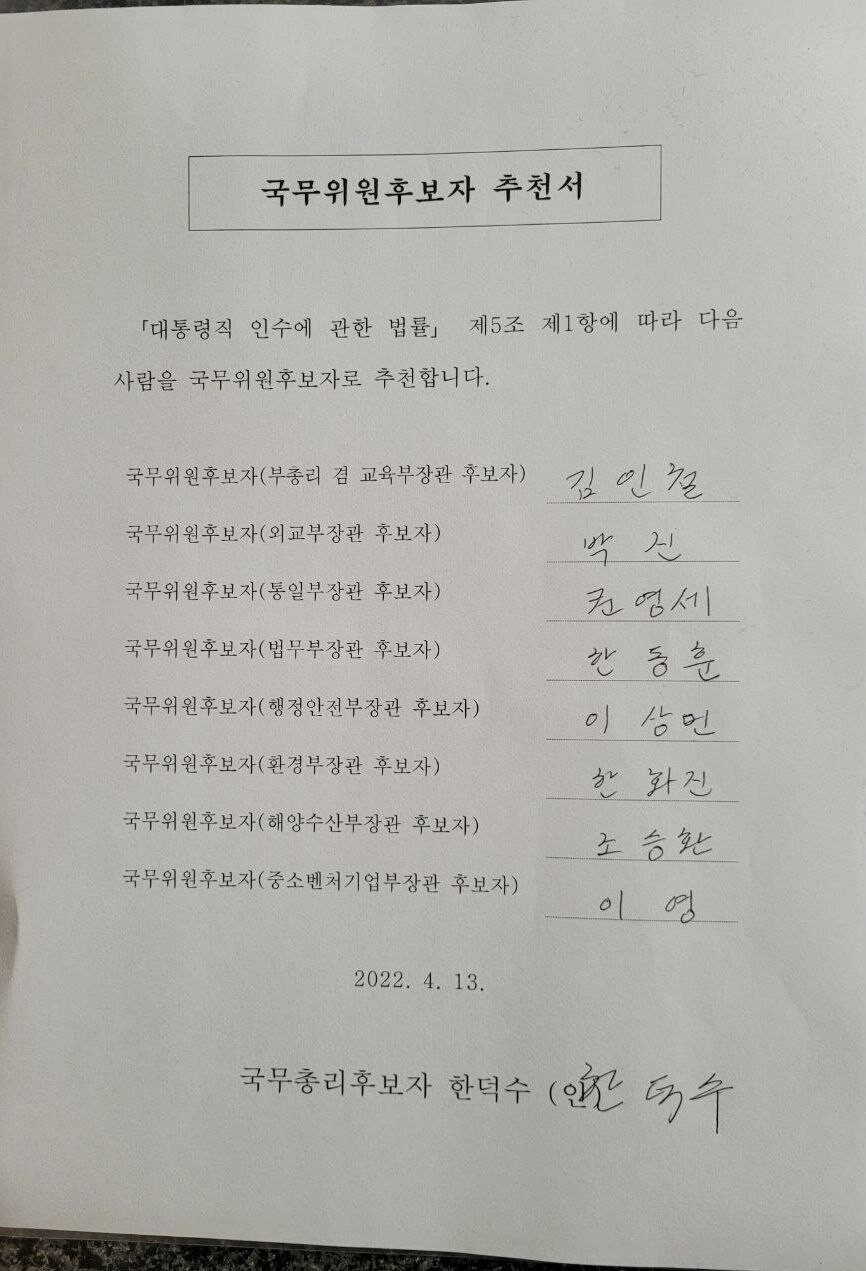 국무위원후보자 추천서
「대통령직 인수에 관한 법률」 제5조 제1항에 따라 다음
사람을 국무위원후보자로 추천합니다.
국무위원후보자(부총리 겸 교육부장관 후보자) 김인철
국무위원후보자(외교부장관 후보자) 박진
국무위원후보자(통일부장관 후보자) 권영세
국무위원후보자(법무부장관 후보자) 한동훈
국무위원후보자(행정안전부장관 후보자) 이상민
국무위원후보자(환경부장관 후보자) 한화진
국무위원후보자(해양수산부장관 후보자) 조승환
국무위원후보자(중소벤처기업부장관 후보자) 이영
2022. 4. 13.
국무총리후보자 한덕수 (인 한덕수